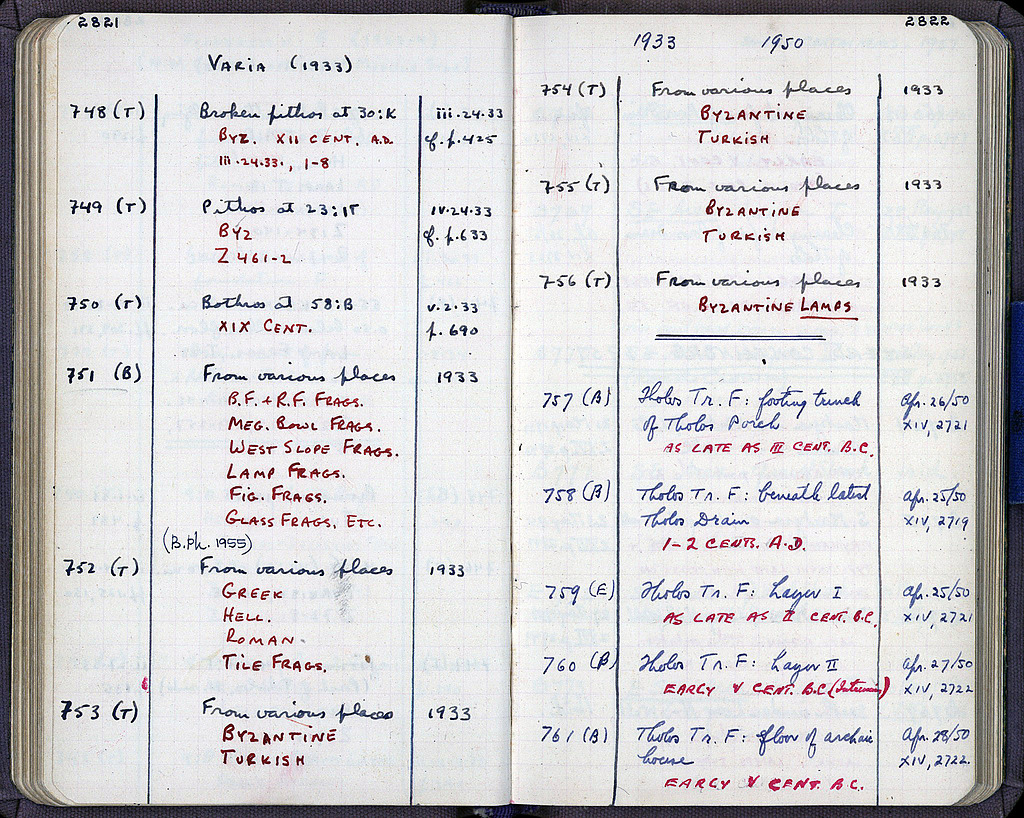 2821
VARIA (1933)
748 (T) Broken pithos at 30:K iii.24.33
BYZ. XII CENT. A.D. cf. p. 425
iii.24.33, 1-8
749 (T) Pithos at 23:ΙΓ iv.24.33
BYZ cf. p. 633
Z 461-2
750 (T) Bothros at 58:B v.2.33
XIX CENT. p. 690
751 (B) From various places 1933
B.F. + R.F. FRAGS.
MEG. BOWL FRAGS.
WEST SLOPE FRAGS.
LAMP FRAGS.
FIG. FRAGS.
GLASS FRAGS, ETC.
(B.Ph. 1955)
752 (T) From various places 1933
GREEK
HELL.
ROMAN.
TILE FRAGS.
753 (T) From various places 1933
BYZANTINE
TURKISH
2822
1933 1950
754 (T) From various places 1933
BYZANTINE
TURKISH
755 (T) From various places 1933
BYZANTINE
TURKISH
756 (T) From various places 1933
BYZANTINE LAMPS
757 (B) Tholos Tr. F: footing trench Apr. 26/50
of Tholos Porch XIV, 2721
AS LATE AS III CENT. B.C.
758 (B) Tholos Tr. F: beneath latest Apr. 25/50
Tholos Drain XIV, 2719
1-2 CENTS. A.D.
759 (E) Tholos Tr. F: Layer I Apr. 25/50
AS LATE AS II CENT. B.C. XIV, 2721
760 (B) Tholos Tr. F: Layer II Apr. 27/50
EARLY V CENT. B.C. XIV, 2722
761 (B) Tholos Tr. F: floor of archaic Apr. 28/50
house XIV, 2722
EARLY V CENT. B.C.